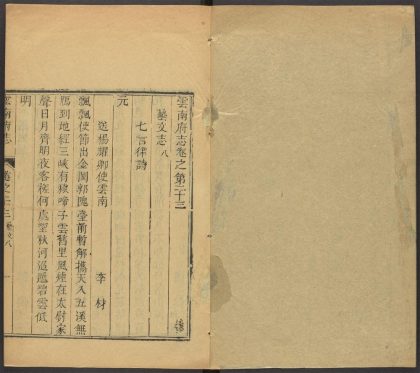 雲南府志卷之第二十三
藝文志八
七言律詩
元
送楊耀卿使雲南
李材
飄飄使節出金閨郭隗臺前暫解攜天入五溪無
鴈到地經三峽有猿啼子雲舊里風煙在太尉家
聲日月齊明夜客楂何處望秋河迢遞碧雲低
明
雲南府志
卷之二十三
藝文八
一